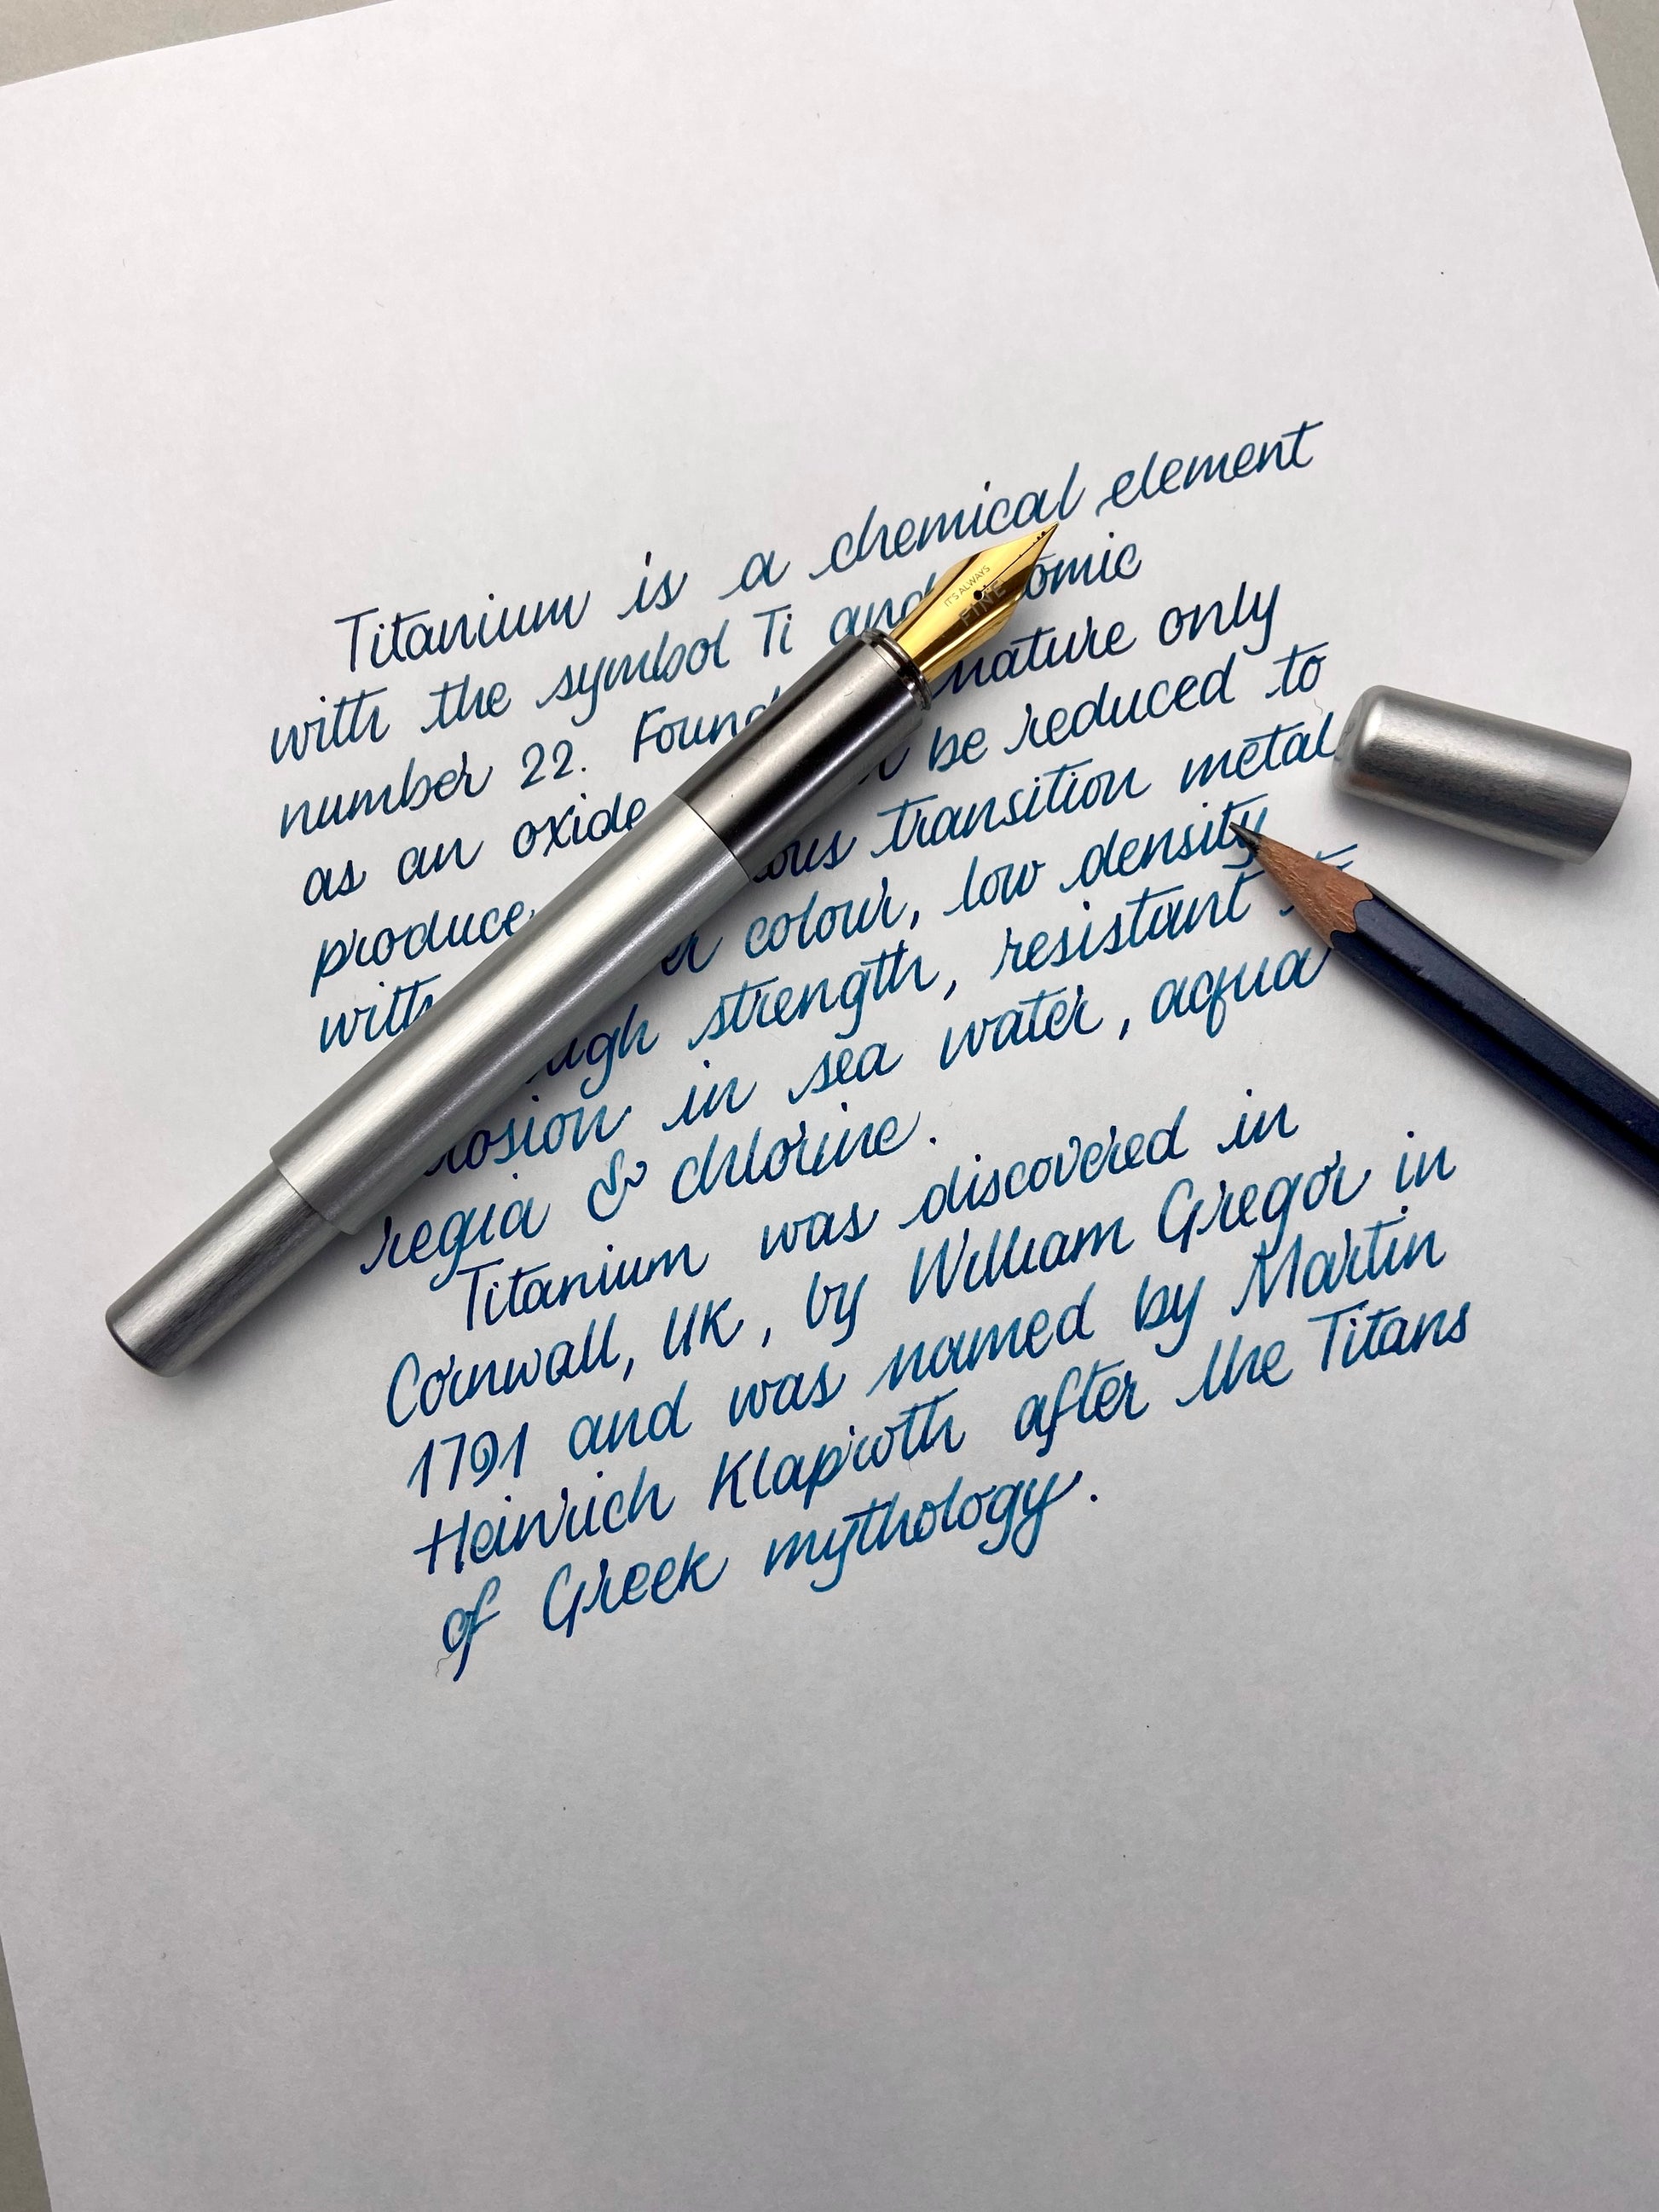 Titanium is a chemical element
with the symbol Ti and
number 22. Found nature only
as an oxide be reduced to
produce transition metal
with colour, low density
strength, resistant
in sea water, aqua
regia & chlorine.
Titanium was discovered in
Cornwall, UK, by William Gregor in
1791 and was named by Martin
Heinrich Klaproth after the Titans
of Greek mythology.
IT'S ALWAYS
FINE